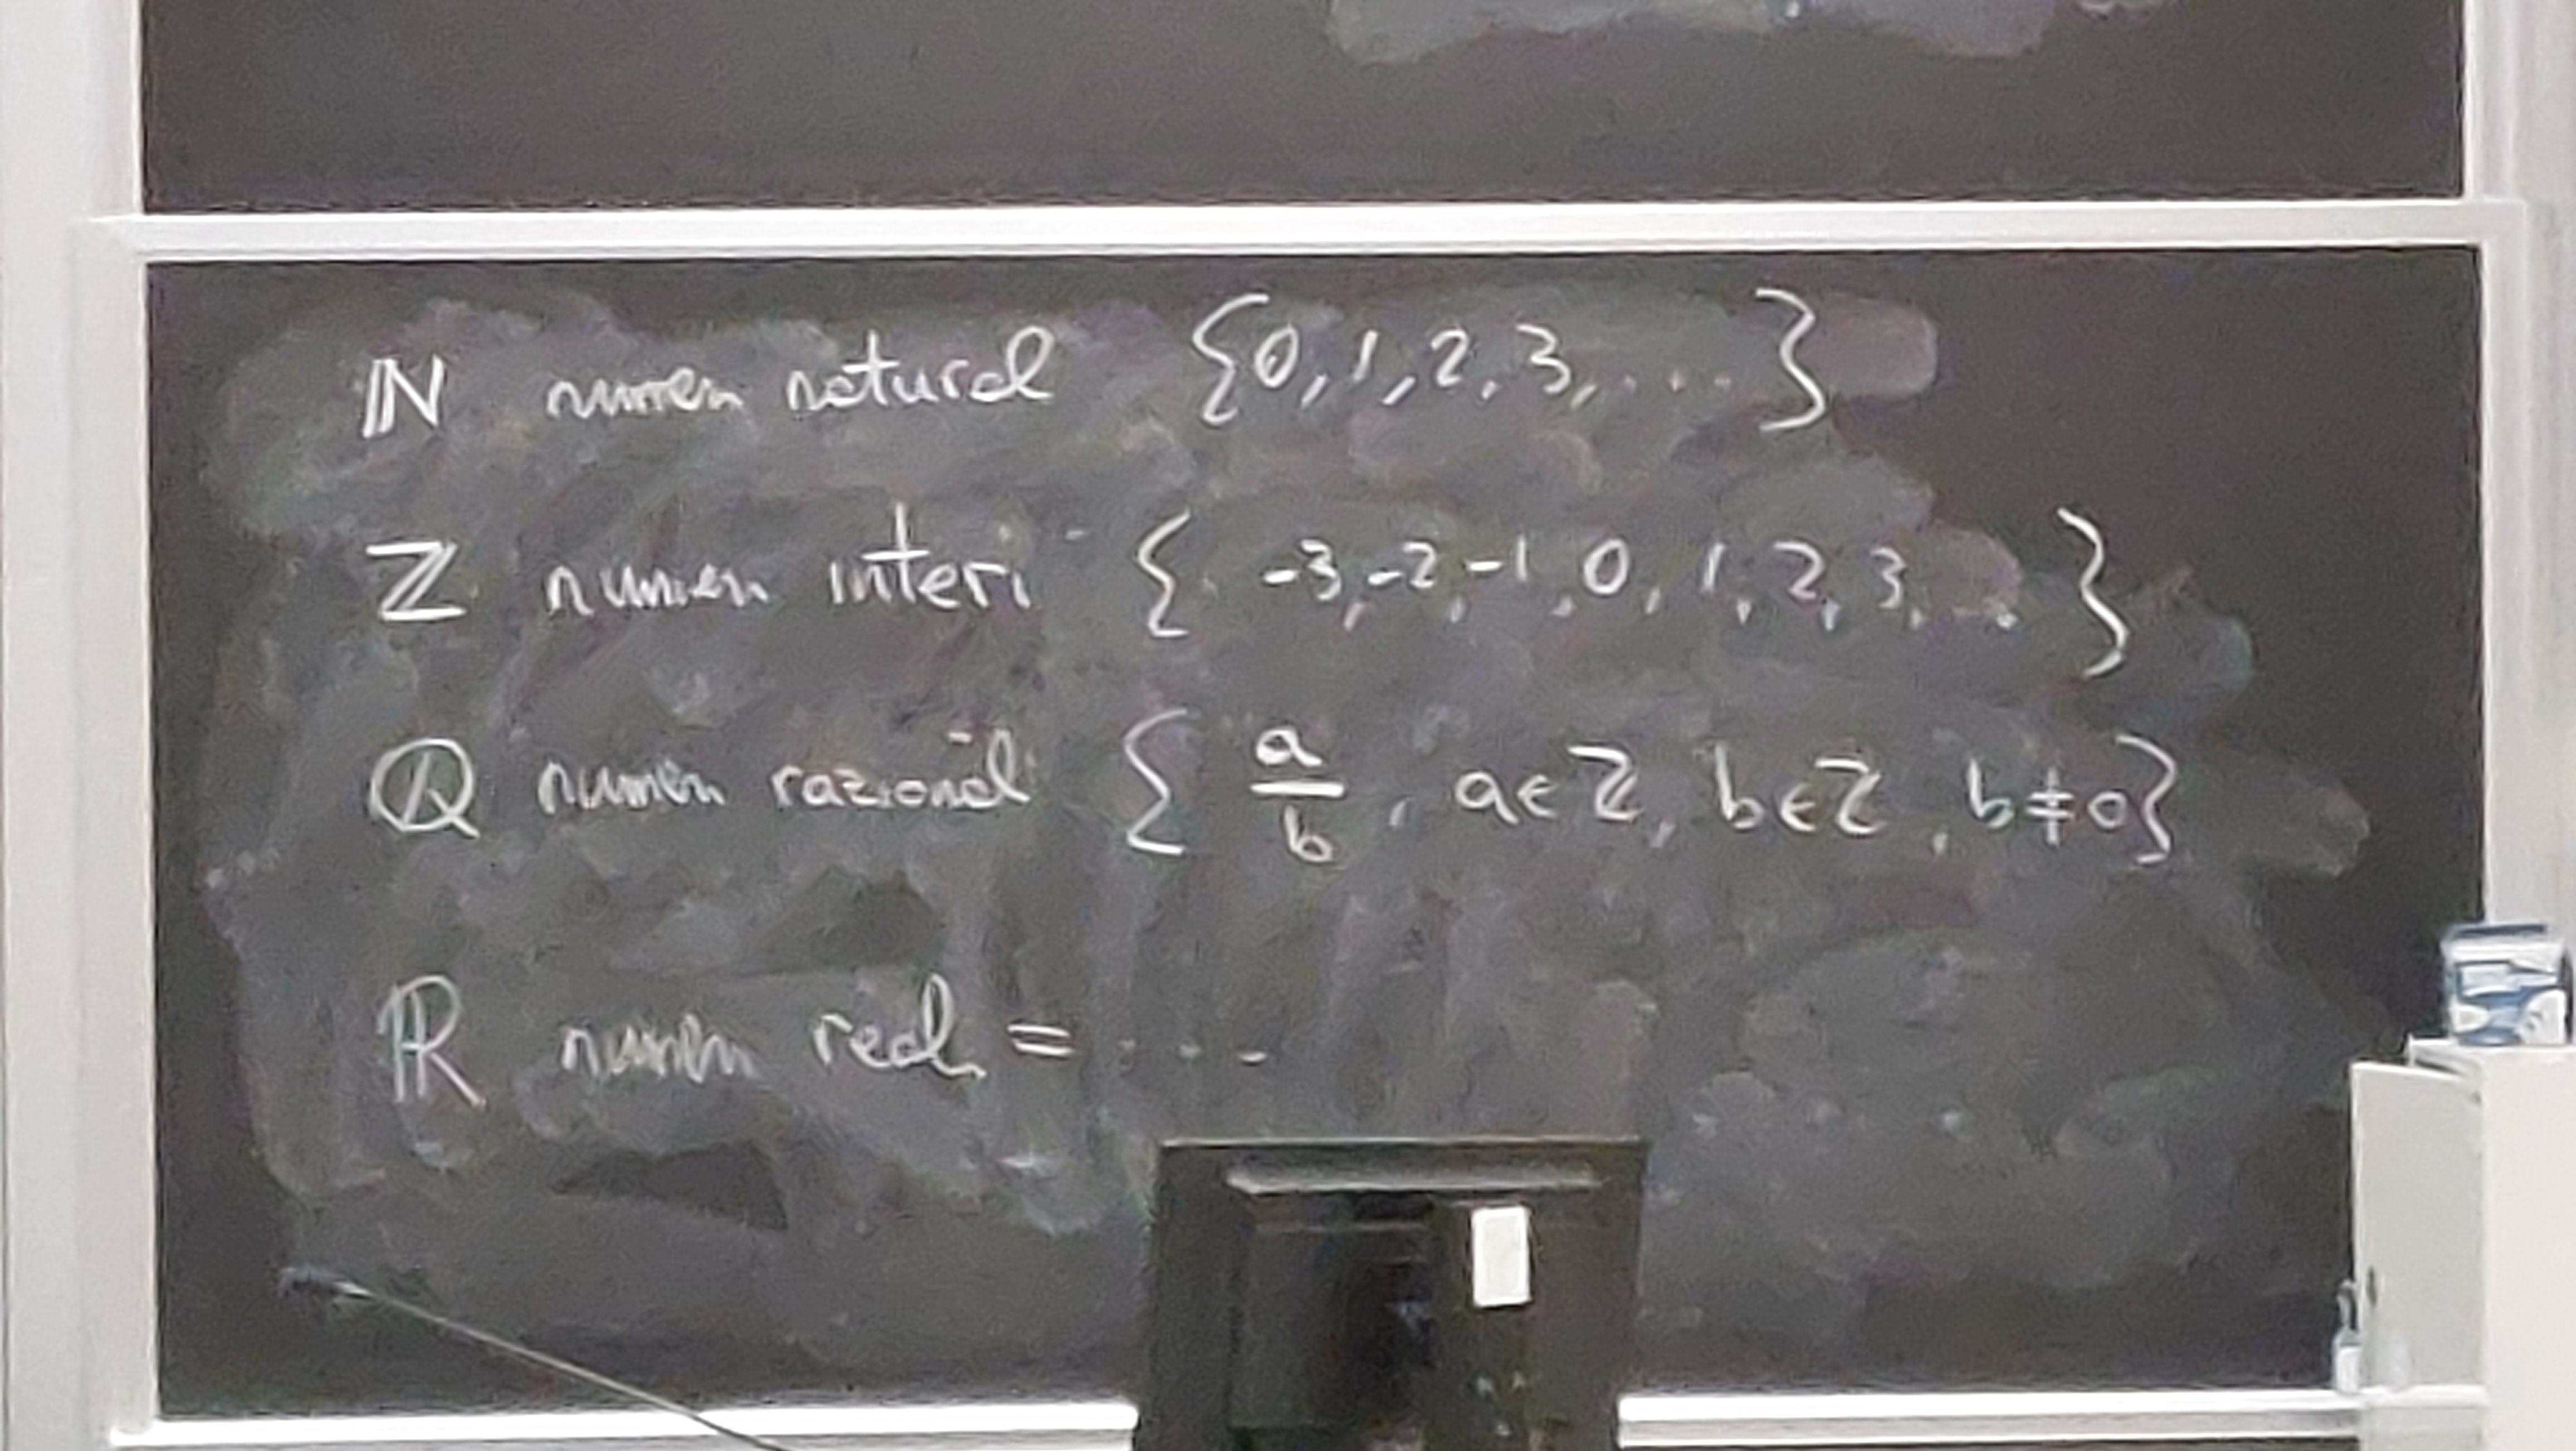 ℕ numeri naturali {0, 1, 2, 3, ... }
ℤ numeri interi { -3, -2, -1, 0, 1, 2, 3, ... }
ℚ numeri razionali { a/b, a∈ℤ, b∈ℤ, b≠0}
ℝ numeri reali = ...